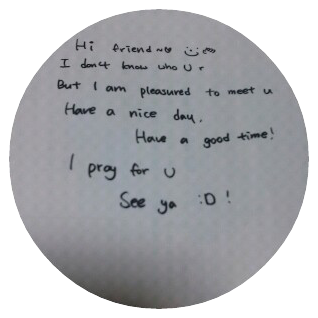 Hi friend~♡ :)
I don't know who U r
But I am pleasured to meet u
Have a nice day.
Have a good time!
I pray for U
See ya :D !